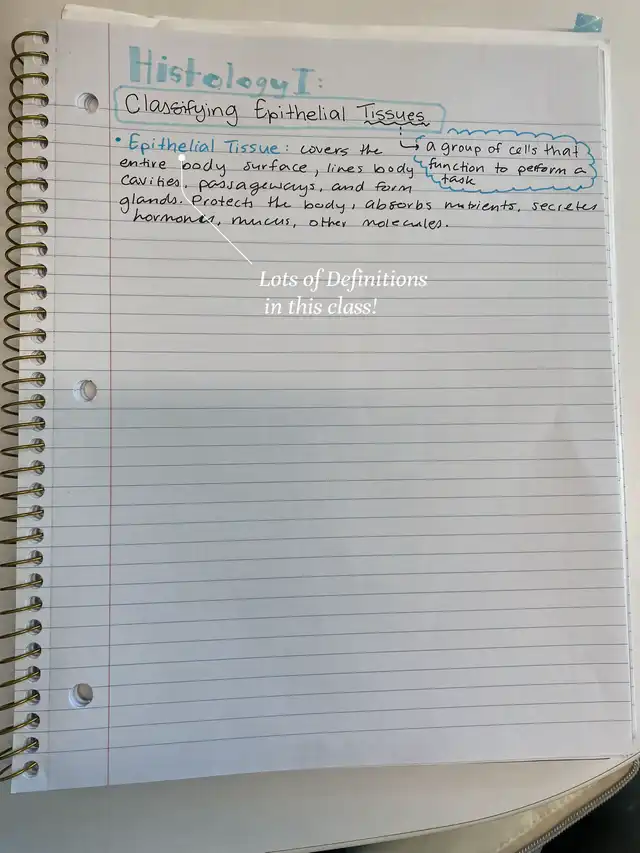 Histology I:
Classifying Epithelial Tissues
• Epithelial Tissue: covers the
entire body surface, lines body
cavities, passageways, and form
glands. Protect the body, absorbs nutrients, secretes
hormones, mucus, other molecules.
→ a group of cells that
function to perform a
task
Lots of Definitions
in this class!